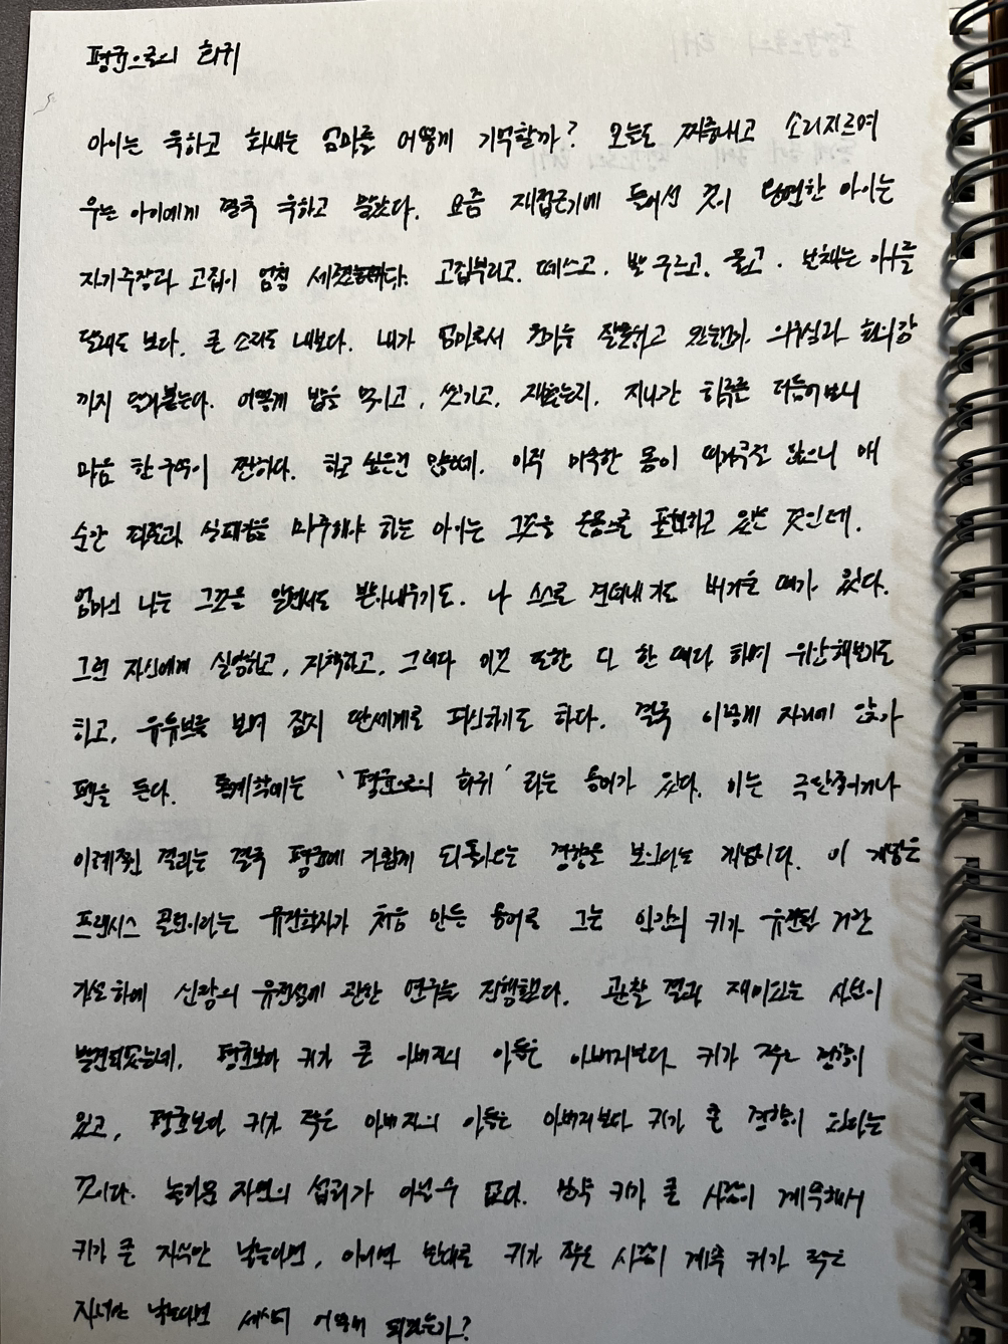 평균으로의 회귀
아이는 욱하고 화내는 엄마를 어떻게 기억할까? 오늘도 짜증내고 소리지르며
우는 아이에게 결국 욱하고 말았다. 요즘 재접근기에 들어선 것이 당연한 아이는
자기주장과 고집이 엄청 세졌다. 고집부리고, 떼쓰고, 발 구르고, 울고, 보채는 아이를
달래도 보다, 큰 소리도 내보다, 내가 엄마로서 잘못하고 있는건가, 의구심과 회의감
까지 달라붙는다. 어떻게 밥을 먹이고, 씻기고, 재웠는지, 지나간 하루를 더듬어보니
마음 한 구석이 짠하다. 하고 싶은건 많은데, 아직 미숙한 몸이 따라주질 않으니 매
순간 좌절과 실패감을 마주해야 하는 아이는 그것을 온몸으로 표현하고 있는 것인데.
엄마인 나는 그것을 알면서도 받아내주기도, 나 스스로 견뎌내기도 버거운 때가 있다.
그런 자신에게 실망하고, 자책하고, 그러다 이것 또한 다 한 때다 하며 위안해보기도
하고, 유튜브를 보며 잠시 딴세계로 피신하기도 하다. 결국 이렇게 자리에 앉아
펜을 든다. 통계학에는 '평균으로의 회귀'라는 용어가 있다. 이는 극단적이거나
이례적인 결과는 결국 평균에 가깝게 되돌아오는 경향을 보인다는 개념이다. 이 개념은
프랜시스 골턴이라는 유전학자가 처음 만든 용어로 그는 인간의 키가 유전될 거란
가설 하에 신장의 유전성에 관한 연구를 진행했다. 관찰 결과 재미있는 사실이
발견되었는데, 평균보다 키가 큰 아버지의 아들은 아버지보다 키가 작은 경향이
있고, 평균보다 키가 작은 아버지의 아들은 아버지보다 키가 큰 경향이 있다는
것이다. 놀라운 자연의 섭리가 아닐 수 없다. 만약 키가 큰 사람이 계속해서
키가 큰 자식만 낳는다면, 아니면 반대로 키가 작은 사람이 계속 키가 작은
자녀만 낳는다면 세상이 어떻게 되겠는가?